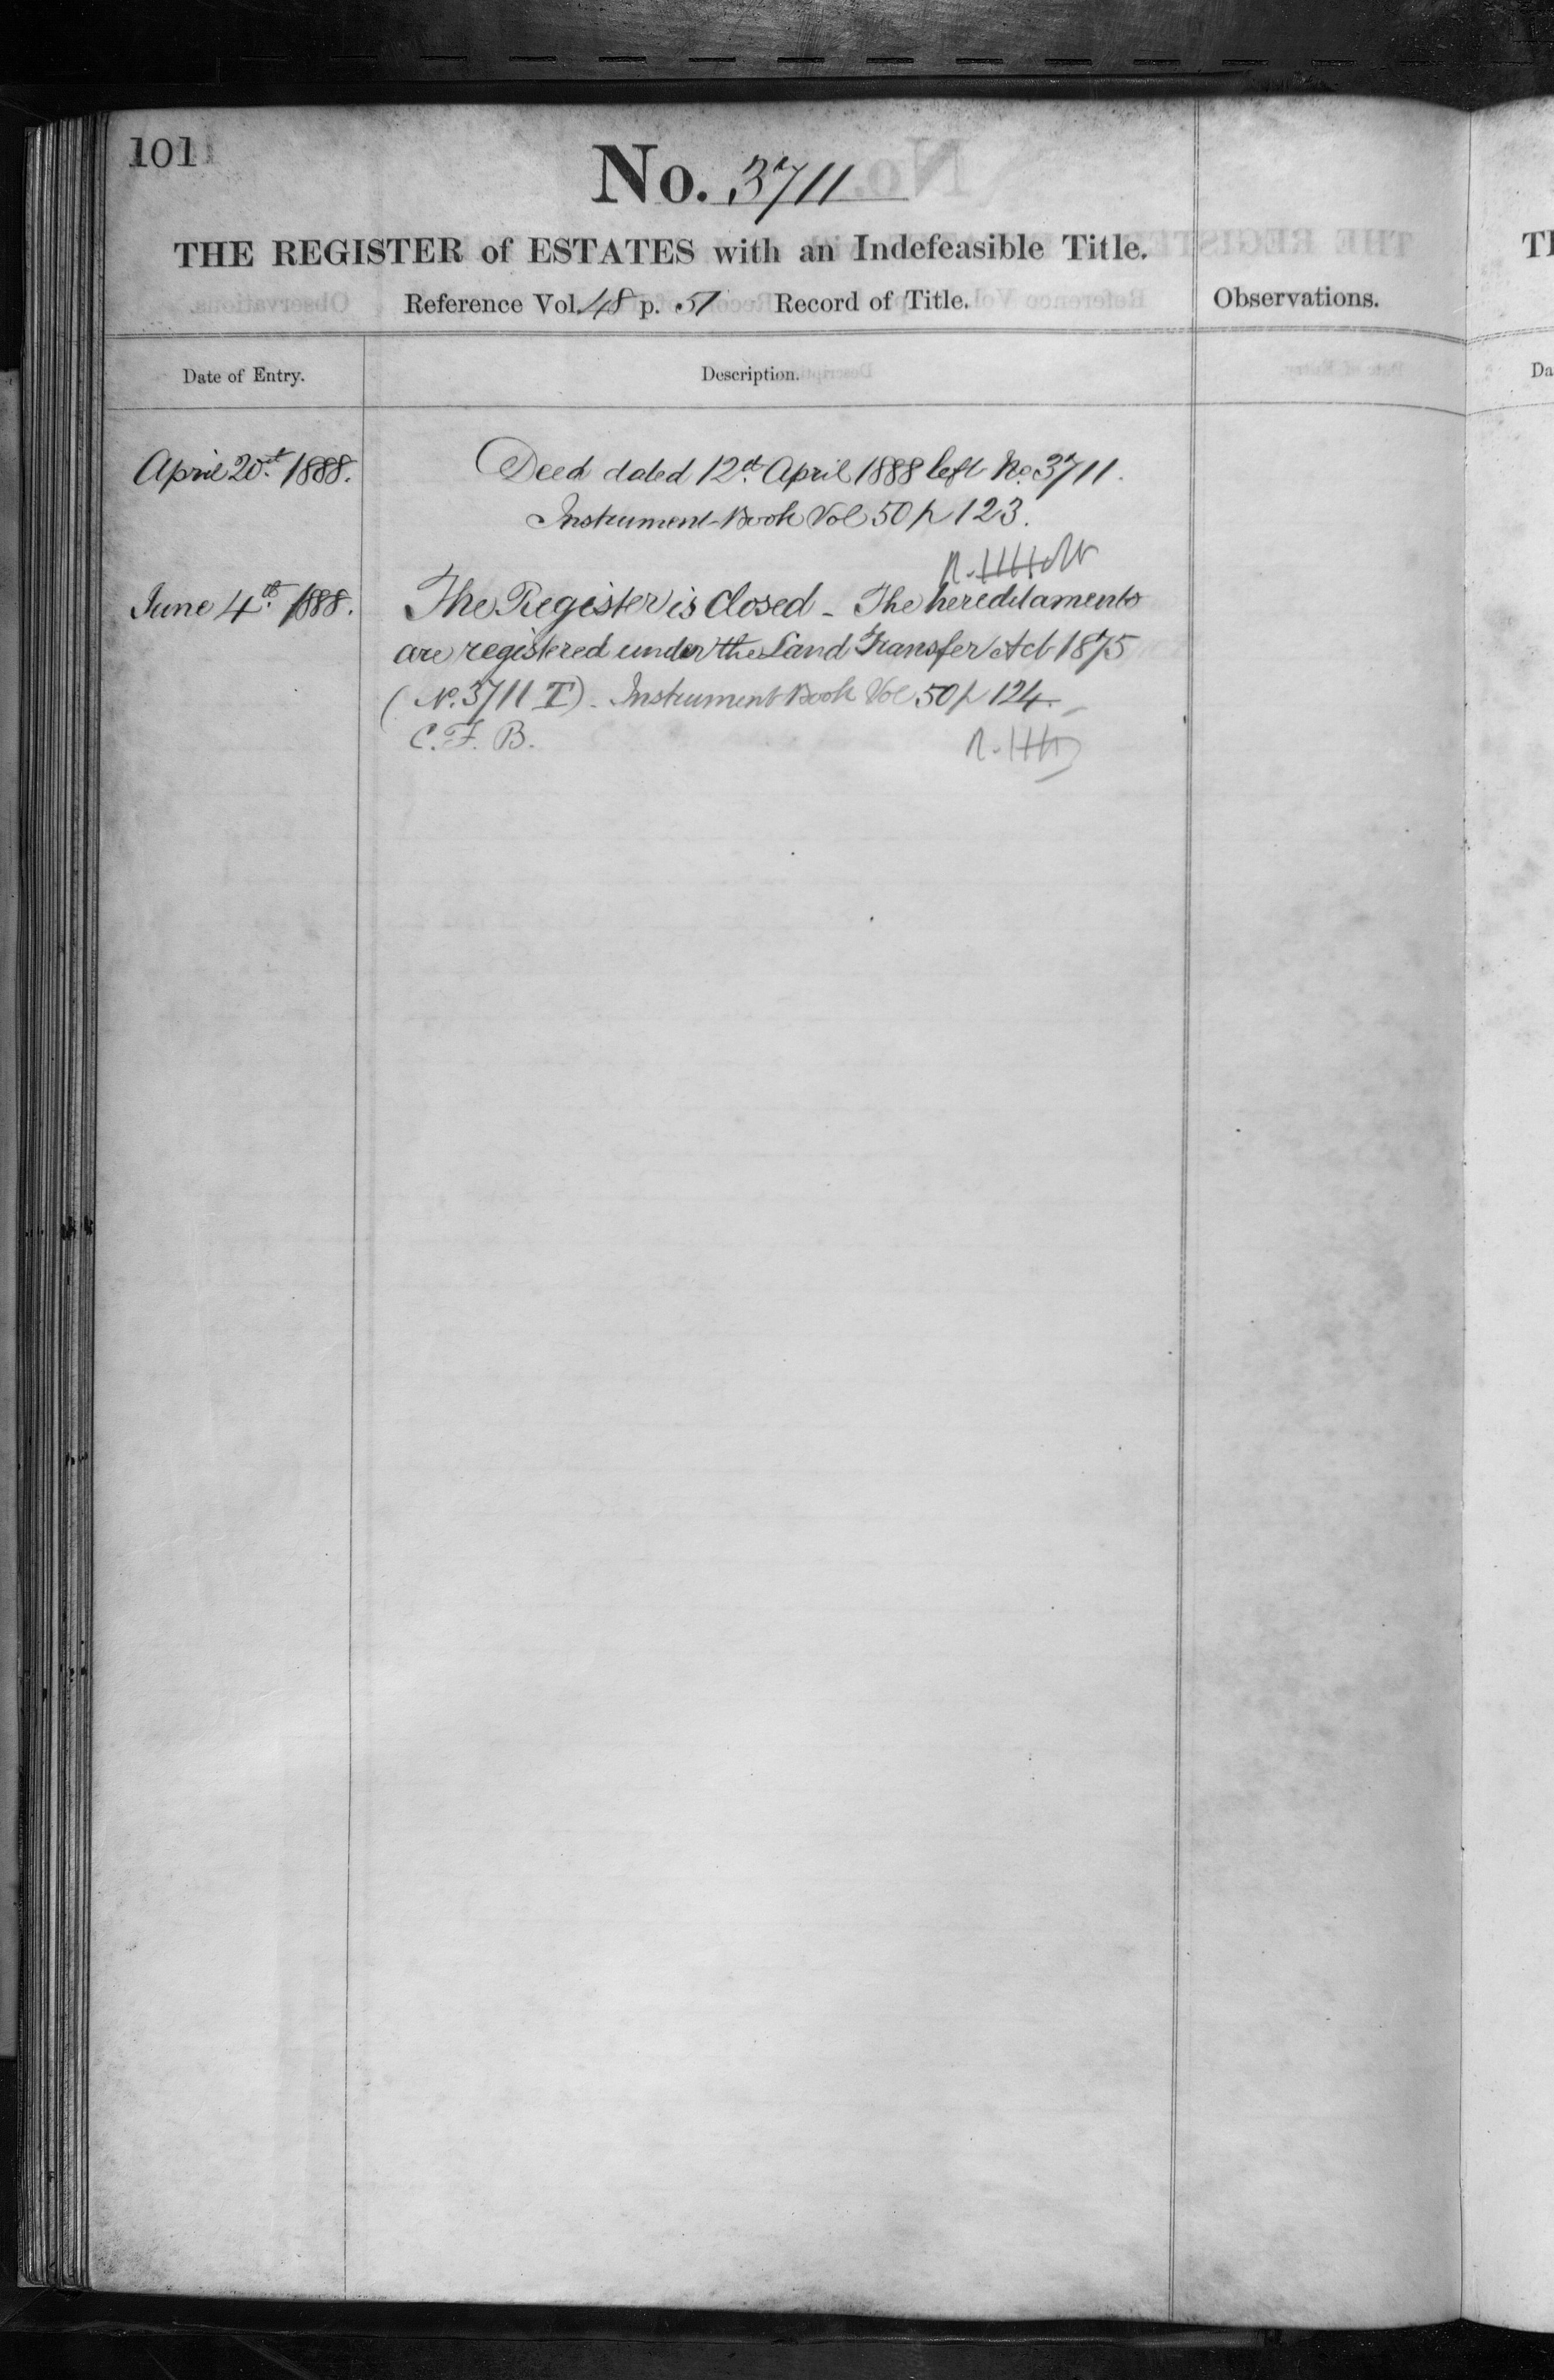 101
No. 3711
THE REGISTER of ESTATES with an Indefeasible Title.
Reference Vol. 48 p. 51 Record of Title.
Observations.
Date of Entry.
Description.
April 20th 1888.
Deed dated 12th April 1888 left No. 3711.
Instrument Book Vol 50 p 123.
June 4th 1888.
The Register is Closed - The hereditaments
are registered under the Land Transfer Act 1875
(No. 3711 T) - Instrument Book Vol 50 p 124.
C. F. B.